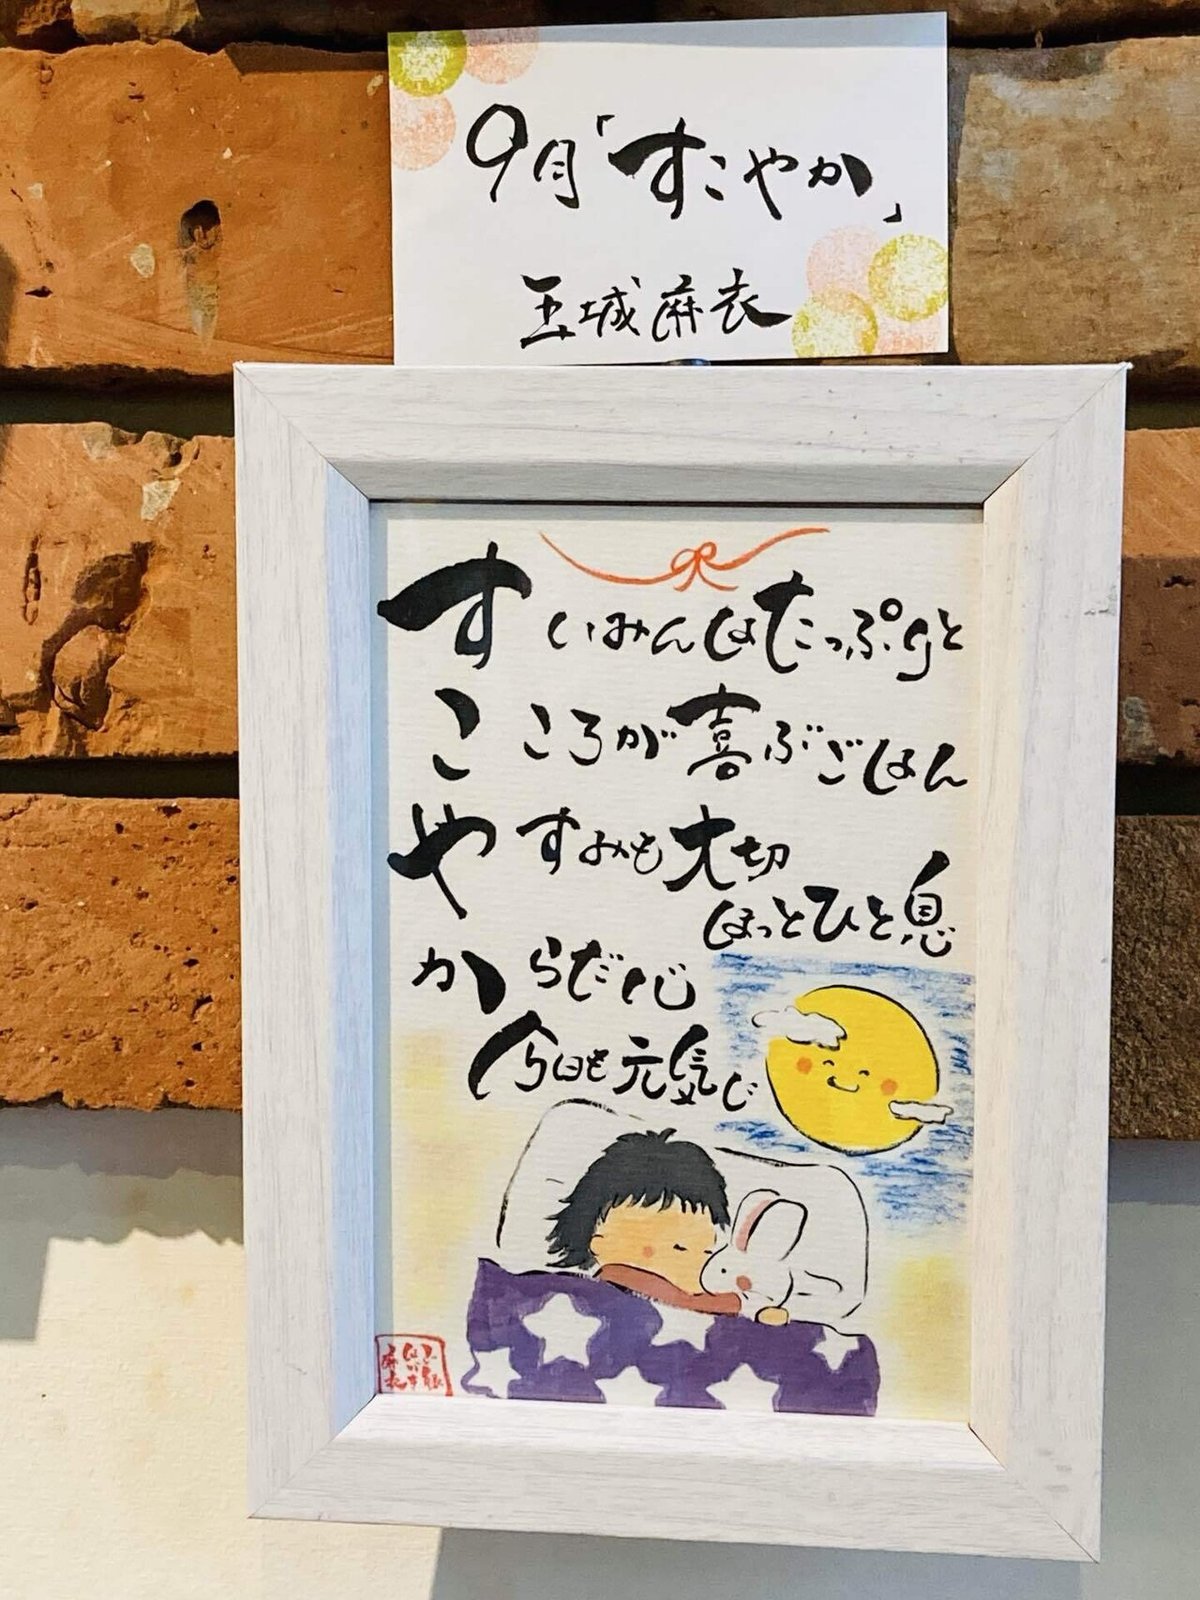 9月「すこやか」
玉城麻衣
すいみんはたっぷりと
こころが喜ぶごはん
やすみも大切
ほっとひと息
からだ心
今日も元気に